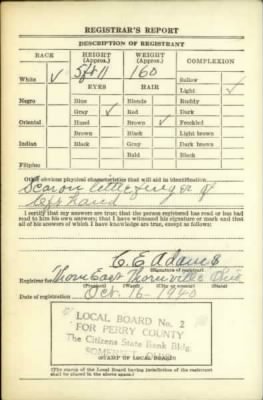 REGISTRAR'S REPORT
DESCRIPTION OF REGISTRANT
RACE HEIGHT (Approx.) WEIGHT (Approx.) COMPLEXION
5 ft 11 160
White ✓ Sallow
EYES HAIR Light ✓
Negro Blue Blonde Ruddy
Gray ✓ Red Dark
Oriental Hazel Brown ✓ Freckled
Brown Black Light brown
Indian Black Gray Dark brown
Bald Black
Filipino
Other obvious physical characteristics that will aid in identification
Scar on little finger of
left hand
I certify that my answers are true; that the person registered has read or has had
read to him his own answers; that I have witnessed his signature or mark and that
all of his answers of which I have knowledge are true, except as follows:
C. E. Adams
(Signature of registrar)
Registrar for Thorn East Thornville Ohio
(Precinct) (Ward) (City or county) (State)
Date of registration Oct. 16-1940
LOCAL BOARD No. 2
FOR PERRY COUNTY
The Citizens State Bank Bldg.
SOMERSET, OHIO
(STAMP OF LOCAL BOARD)
(The stamp of the Local Board having jurisdiction of the registrant
shall be placed in the above space.)